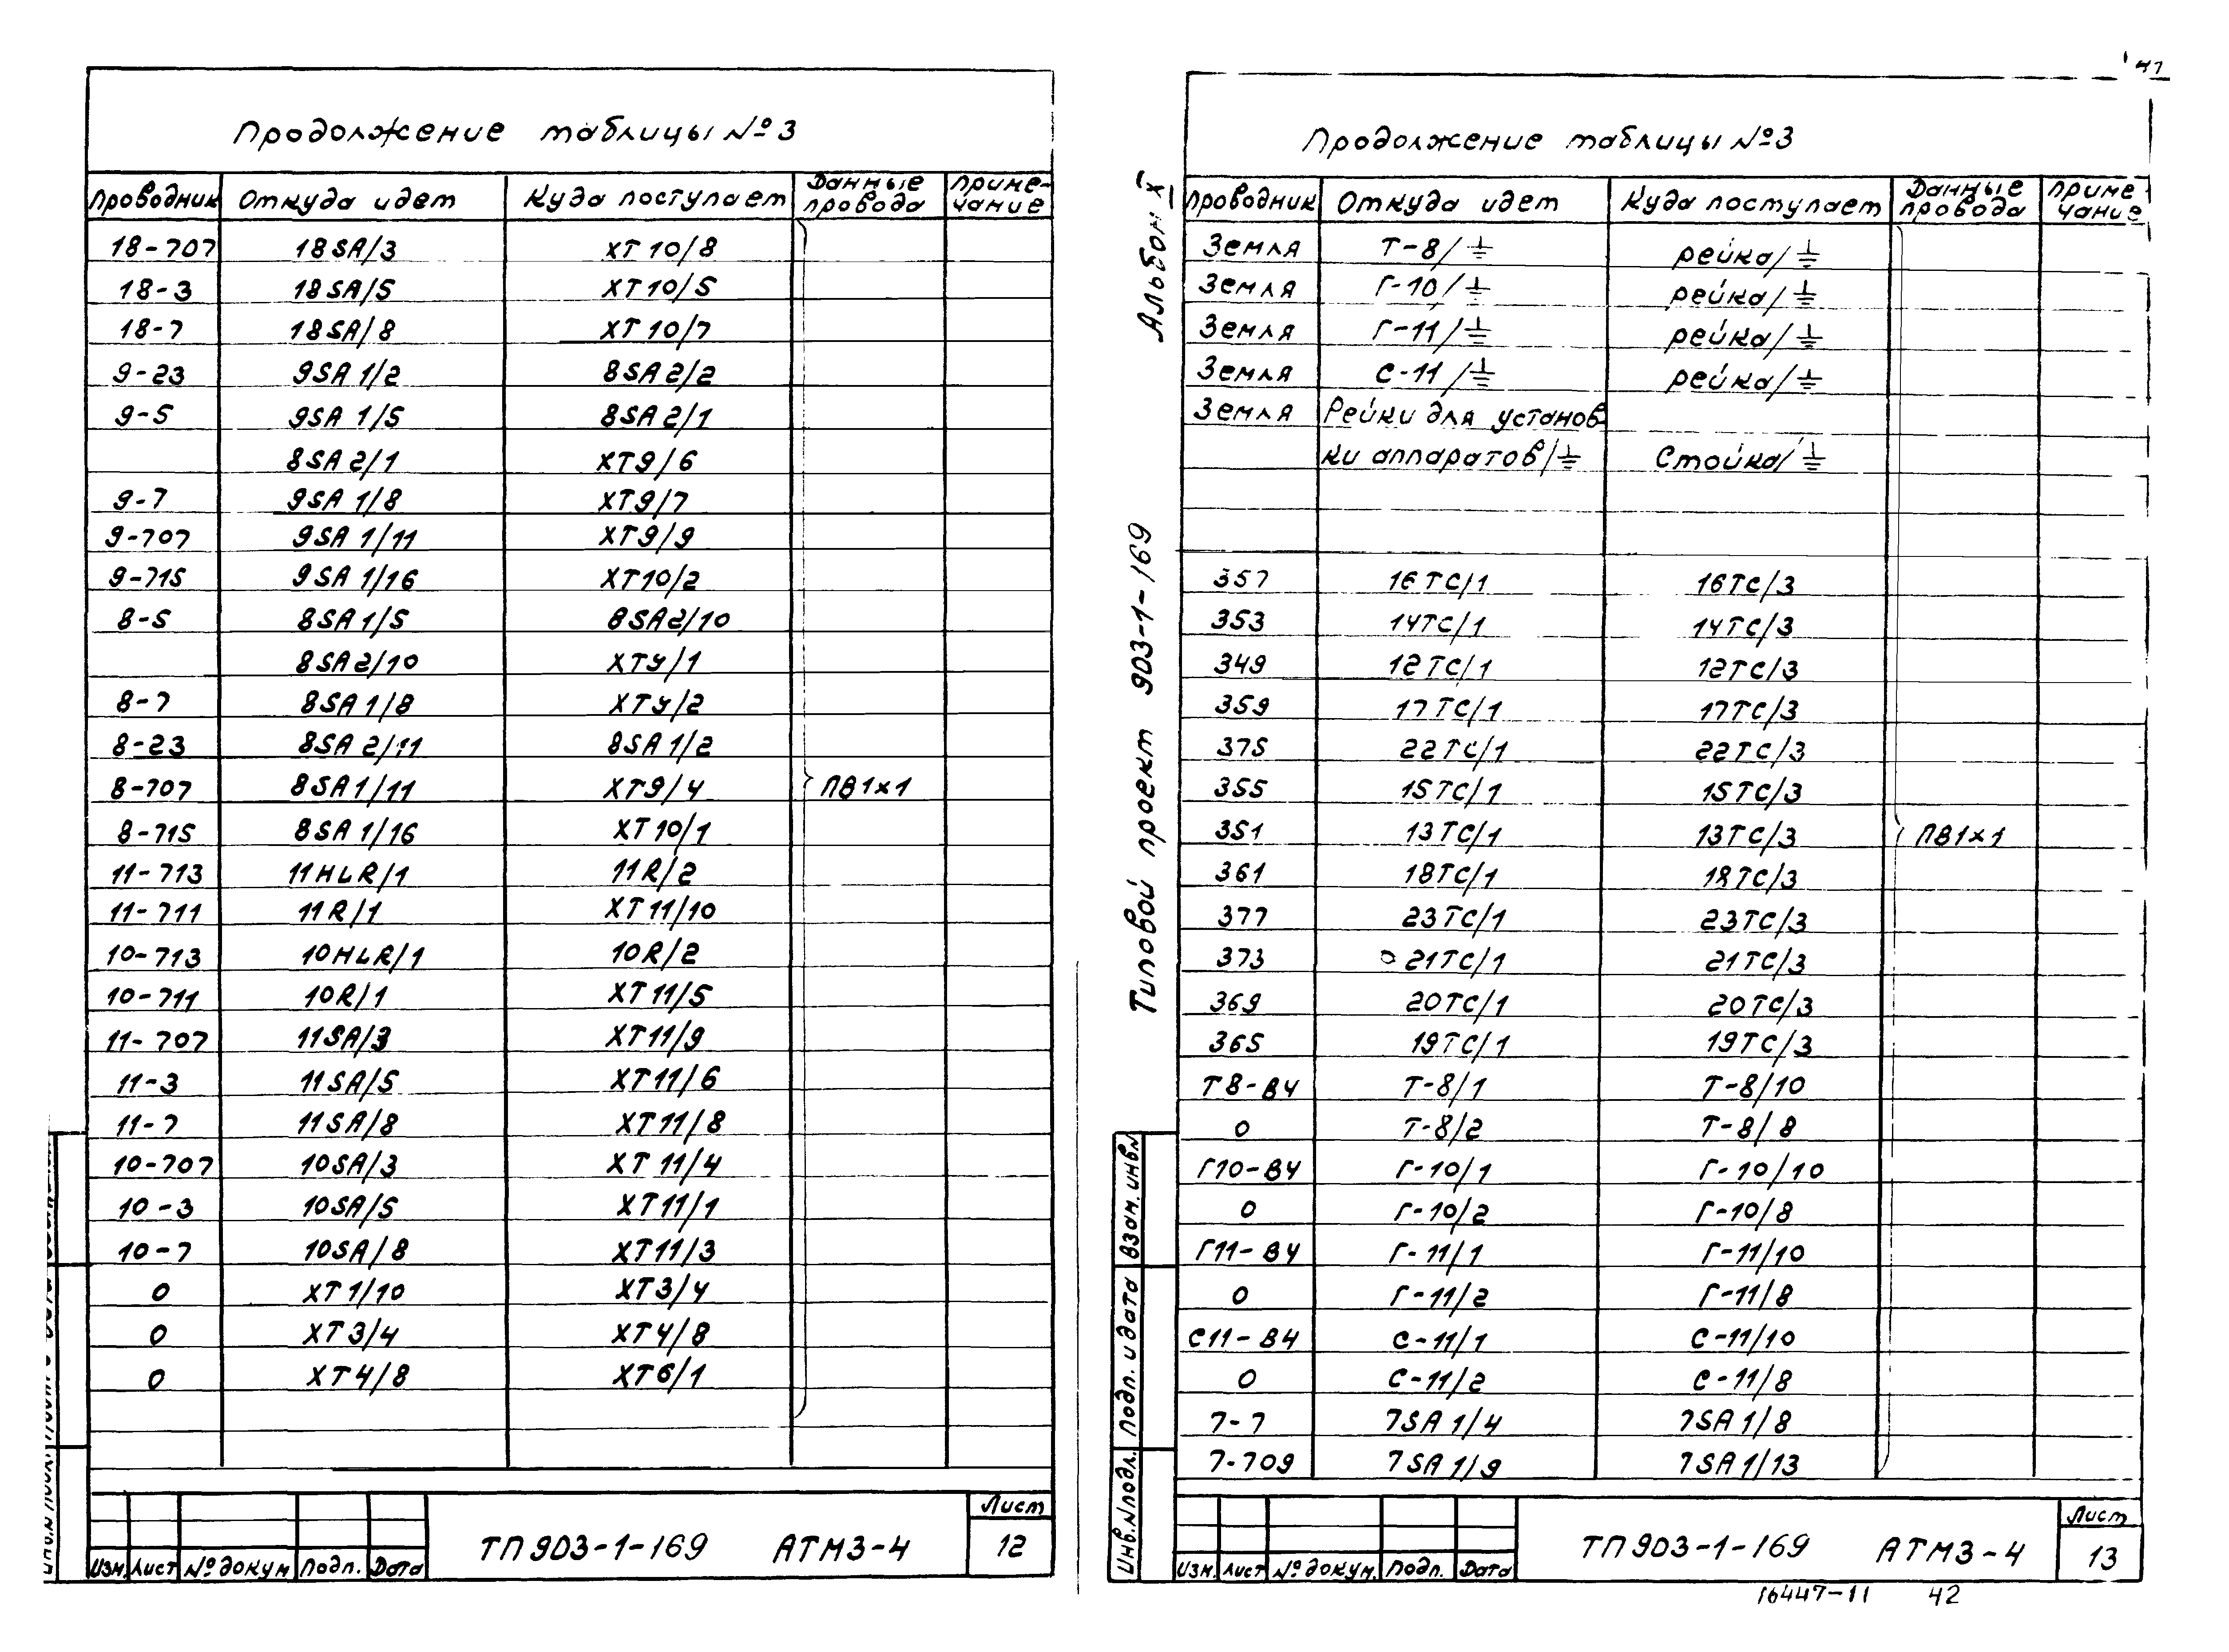 Продолжение таблицы №3
Проводник Откуда идет Куда поступает Данные провода Приме-чание
18-707 18SA/3 XT10/8
18-3 18SA/5 XT10/5
18-7 18SA/8 XT10/7
9-23 9SA1/2 8SA2/2
9-5 9SA1/5 8SA2/1
8SA2/1 XT9/6
9-7 9SA1/8 XT9/7
9-707 9SA1/11 XT9/9
9-715 9SA1/16 XT10/2
8-5 8SA1/5 8SA2/10
8SA2/10 XTУ/1
8-7 8SA1/8 XTУ/2
8-23 8SA2/11 8SA1/2
8-707 8SA1/11 XT9/4 ПВ1x1
8-715 8SA1/16 XT10/1
11-713 11HLR/1 11R/2
11-711 11R/1 XT11/10
10-713 10HLR/1 10R/2
10-711 10R/1 XT11/5
11-707 11SA/3 XT11/9
11-3 11SA/5 XT11/6
11-7 11SA/8 XT11/8
10-707 10SA/3 XT11/4
10-3 10SA/5 XT11/1
10-7 10SA/8 XT11/3
0 XT1/10 XT3/4
0 XT3/4 XT4/8
0 XT4/8 XT6/1
Изм. Лист № докум Подп. Дата
ТП903-1-169 АТМ3-4
Лист
12
41
Альбом X
Типовой проект 903-1-169
Продолжение таблицы №3
Проводник Откуда идет Куда поступает Данные провода Приме-чание
Земля Т-8/⏚ рейка/⏚
Земля Г-10/⏚ рейка/⏚
Земля Г-11/⏚ рейка/⏚
Земля С-11/⏚ рейка/⏚
Земля Рейки для установ
ки аппаратов/⏚ Стойка/⏚
357 16ТС/1 16ТС/3
353 14ТС/1 14ТС/3
349 12ТС/1 12ТС/3
359 17ТС/1 17ТС/3
375 22ТС/1 22ТС/3
355 15ТС/1 15ТС/3
351 13ТС/1 13ТС/3 ПВ1x1
361 18ТС/1 18ТС/3
377 23ТС/1 23ТС/3
373 21ТС/1 21ТС/3
369 20ТС/1 20ТС/3
365 19ТС/1 19ТС/3
Т8-В4 Т-8/1 Т-8/10
0 Т-8/2 Т-8/8
Г10-В4 Г-10/1 Г-10/10
0 Г-10/2 Г-10/8
Г11-В4 Г-11/1 Г-11/10
0 Г-11/2 Г-11/8
С11-В4 С-11/1 С-11/10
0 С-11/2 С-11/8
7-7 7SA1/4 7SA1/8
7-709 7SA1/9 7SA1/13
Инв.N подл. Подп. и дата Взам. инв.N
Изм. Лист № докум. Подп. Дата
ТП903-1-169 АТМ3-4
Лист
13
16447-11 42